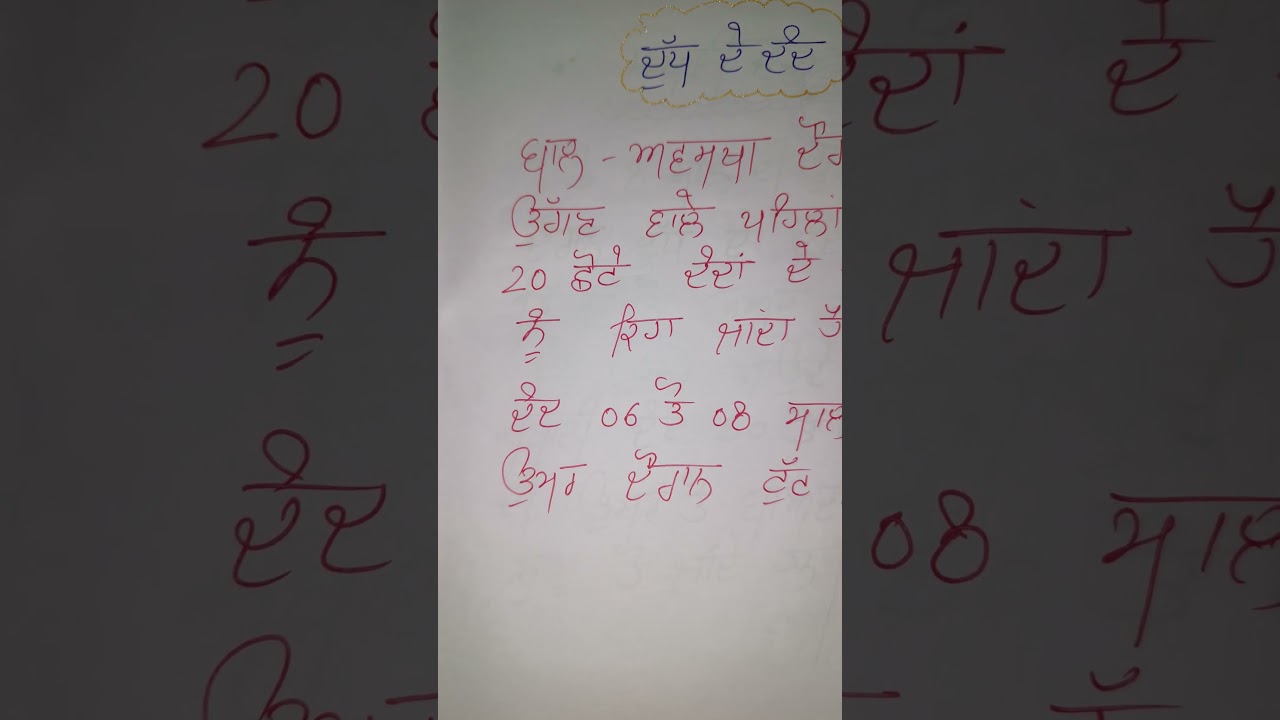 ਦੁੱਧ ਦੇ ਦੰਦ
ਬਾਲ - ਅਵਸਥਾ
ਉੱਗਣ ਵਾਲੇ ਪਹਿਲਾਂ
20 ਛੋਟੇ ਦੰਦਾਂ ਦੇ
ਨੂੰ ਕਿਹਾ ਜਾਂਦਾ ਹੈ
ਦੰਦ 06 ਤੋਂ 08 ਸਾਲ
ਉਮਰ ਦੌਰਾਨ ਟੁੱਟ